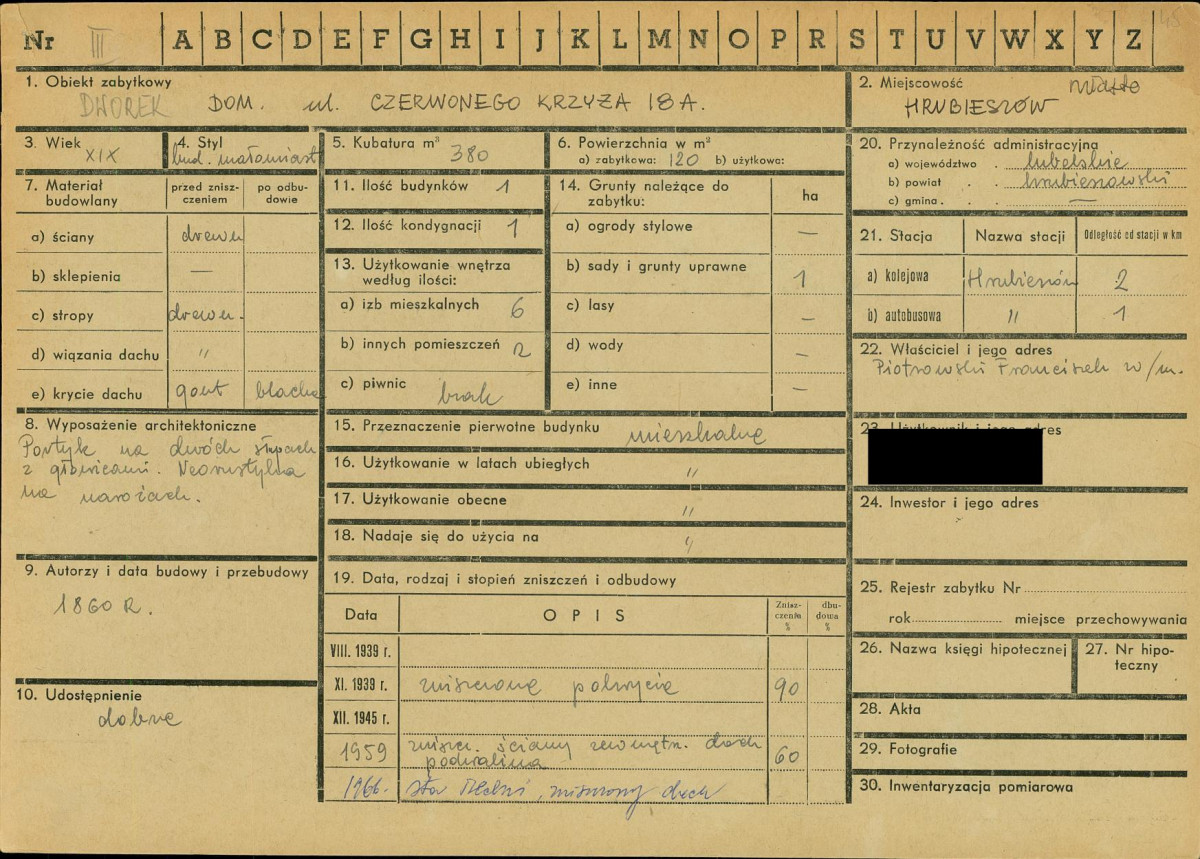 Nr III A B C D E F G H I J K L M N O P R S T U V W X Y Z
1. Obiekt zabytkowy
DWOREK DOM. ul. CZERWONEGO KRZYŻA 18A.
2. Miejscowość miasto
HRUBIESZÓW
3. Wiek
XIX
4. Styl
bud. małomiast
5. Kubatura m³ 380
6. Powierzchnia w m²
a) zabytkowa: 120 b) użytkowa:
7. Materiał budowlany
przed zniszczeniem
po odbudowie
a) ściany drewn
b) sklepienia —
c) stropy drewn.
d) wiązania dachu "
e) krycie dachu gont blacha
8. Wyposażenie architektoniczne
Portyk na dwóch słupach
z głowicami.
na narożach.
9. Autorzy i data budowy i przebudowy
1860 R.
10. Udostępnienie
dobre
11. Ilość budynków 1
12. Ilość kondygnacji 1
13. Użytkowanie wnętrza
według ilości:
a) izb mieszkalnych 6
b) innych pomieszczeń 2
c) piwnic brak
14. Grunty należące do
zabytku:
ha
a) ogrody stylowe —
b) sady i grunty uprawne 1
c) lasy —
d) wody —
e) inne —
15. Przeznaczenie pierwotne budynku mieszkalne
16. Użytkowanie w latach ubiegłych "
17. Użytkowanie obecne "
18. Nadaje się do użycia na "
19. Data, rodzaj i stopień zniszczeń i odbudowy
Data
OPIS
Zniszczenia %
dbudowa %
VIII. 1939 r.
XI. 1939 r. zniszczone pokrycie 90
XII. 1945 r.
1959 zniszcz. ściany zewnętrz. dach
podwalina 60
1966. zniszczony dach
20. Przynależność administracyjna
a) województwo lubelskie
b) powiat hrubieszowski
c) gmina —
21. Stacja
Nazwa stacji
Odległość od stacji w km
a) kolejowa Hrubieszów 2
b) autobusowa " 1
22. Właściciel i jego adres
Piotrowski Franciszek w/m.
23. Użytkownik i jego adres
24. Inwestor i jego adres
25. Rejestr zabytku Nr
rok miejsce przechowywania
26. Nazwa księgi hipotecznej
27. Nr hipoteczny
28. Akta
29. Fotografie
30. Inwentaryzacja pomiarowa